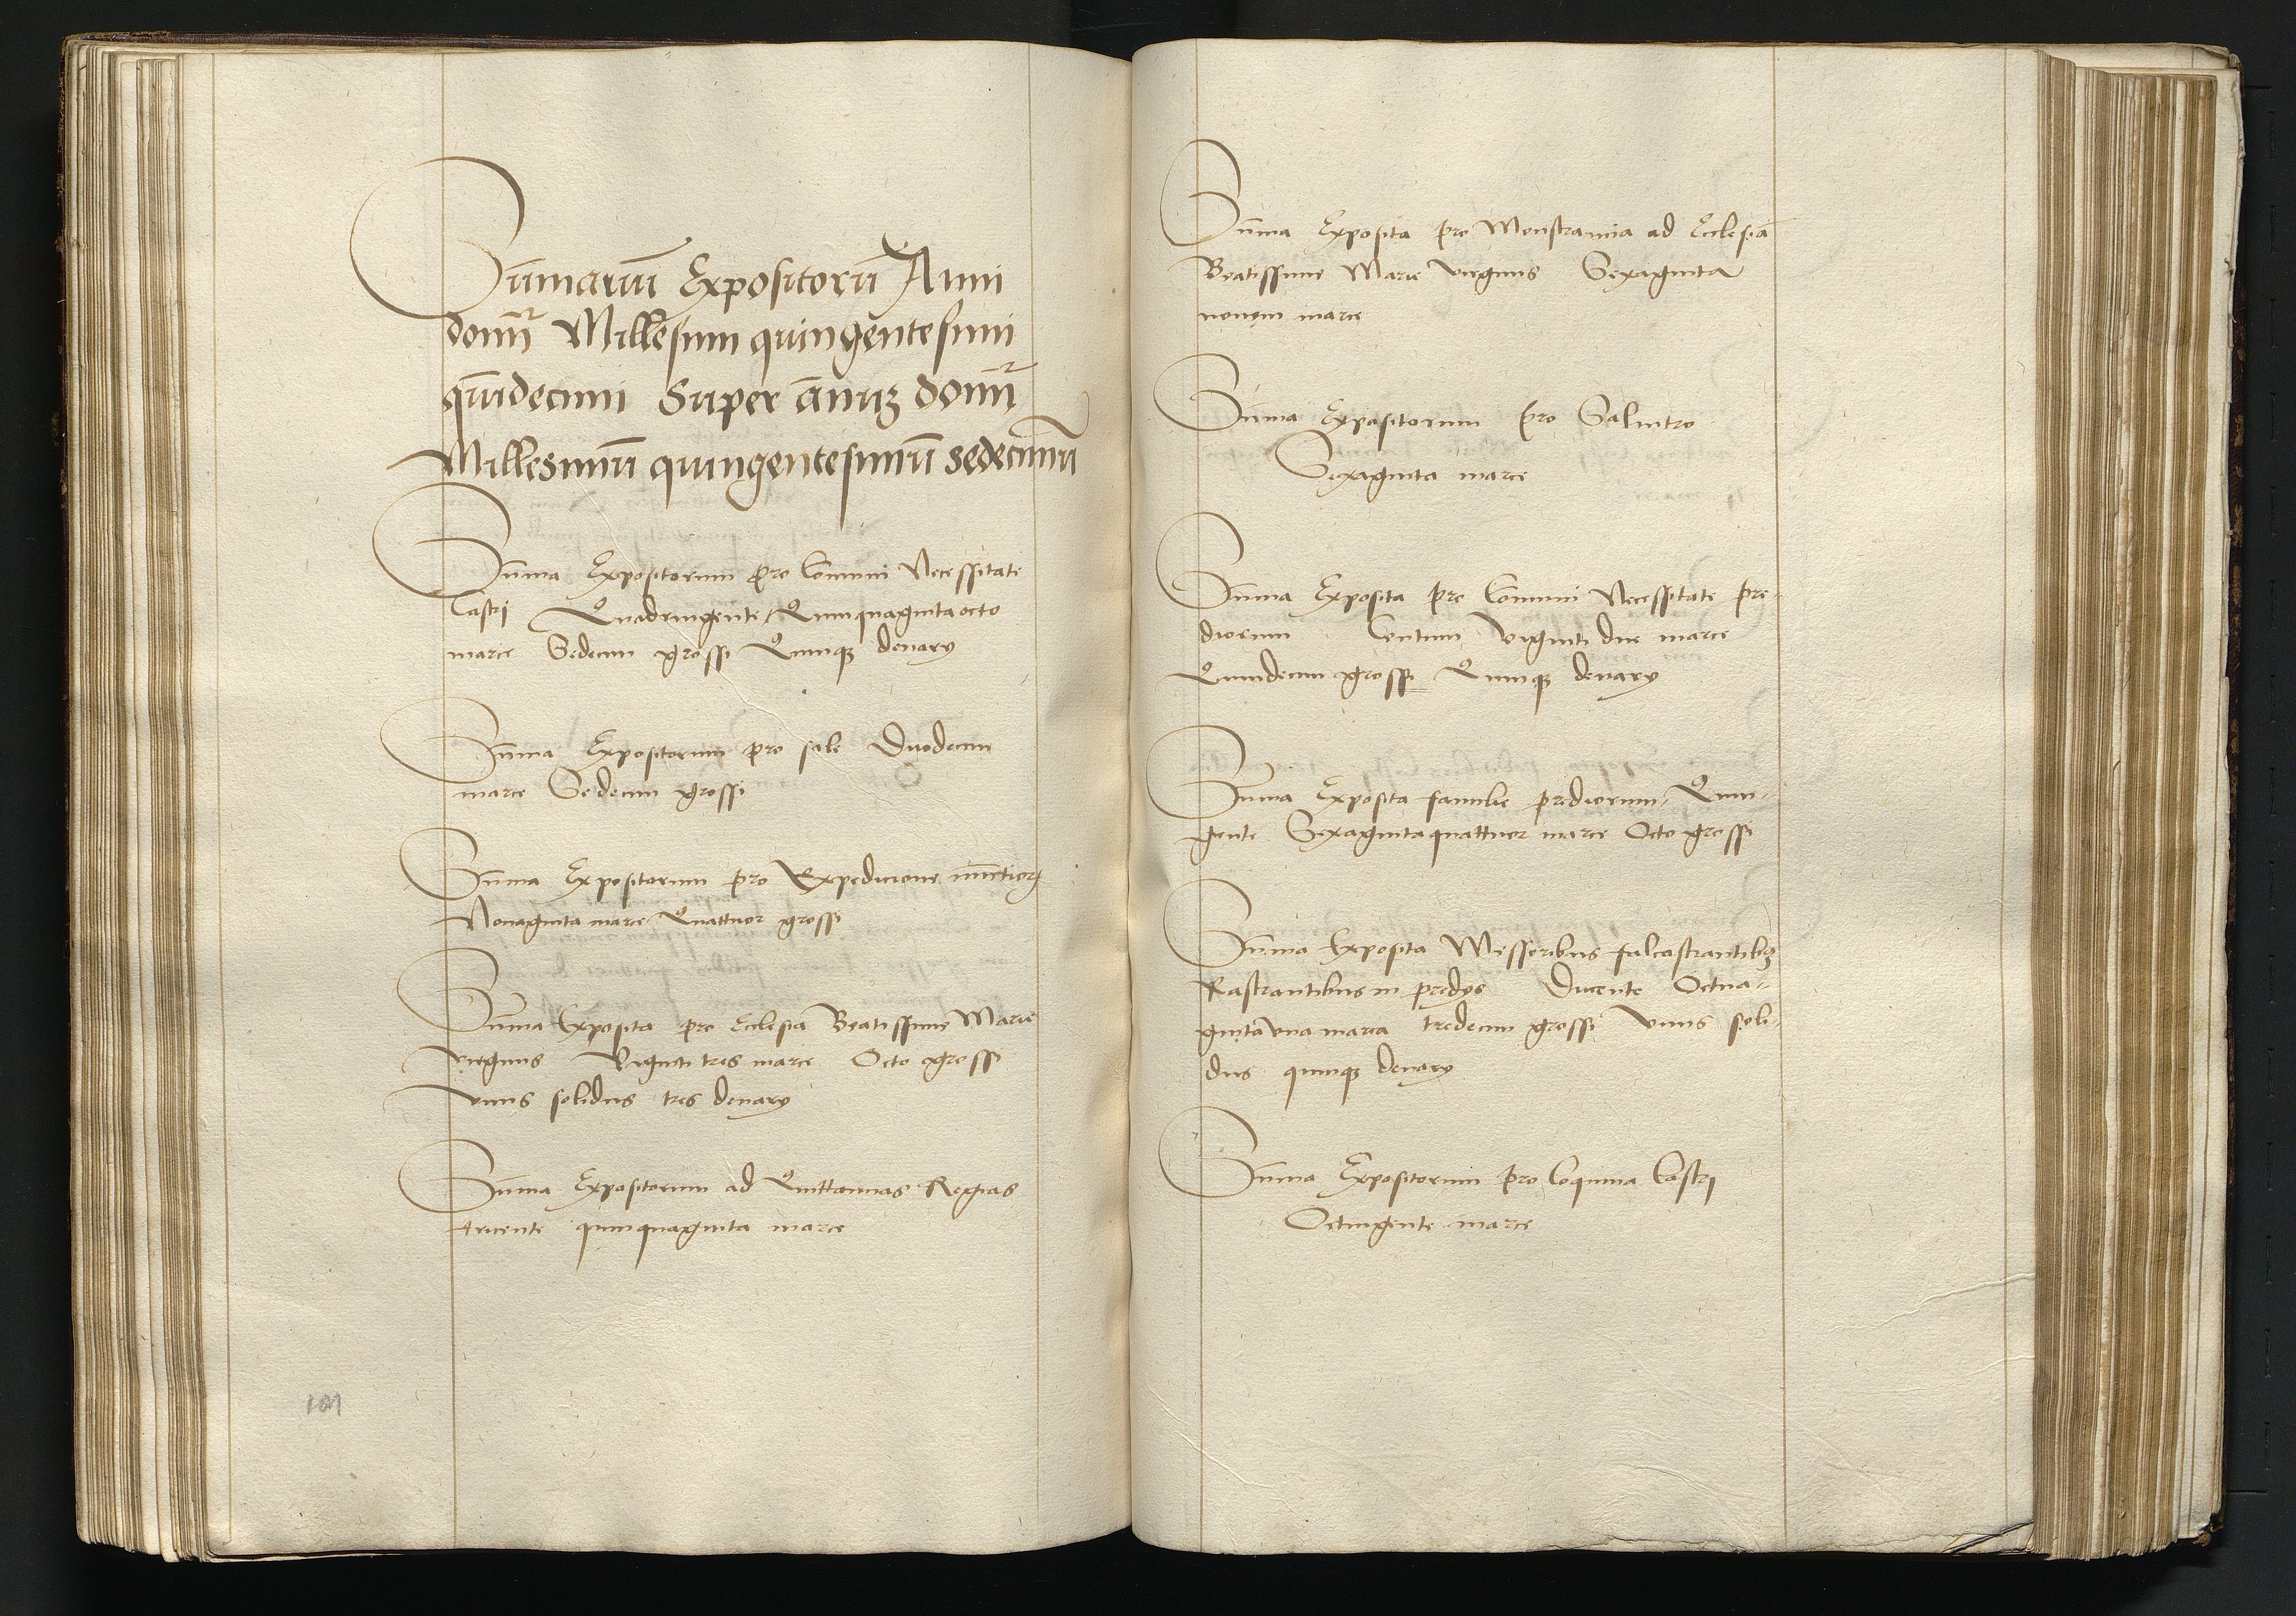 Su̅mariu̅ Expositoru̅ Anni
domi̅ Millesimi quingentesimi
qui̅decimi Super a̅nu̅ domi̅
Millesimu̅ quingentesimu̅ sedecimu̅
Su̅ma Expositorum pro Comuni Necessitate
Castri Quadringente Quinquaginta octo
marce Sedecim grossi Quinqꝫ denarÿ
Su̅ma Expositorum pro sale Duodecim
marce Sedecim grossi
Su̅ma Expositorum pro Expedicione nu̅ctioꝝ
Nonaginta marce Quattuor grossi
Su̅ma Exposita pro Ecclesia̅ Beatissime Marie
virginis Viginti tres marce Octo grossi
vnus solidus tres denarÿ
Su̅ma Expositorum ad Quittancias Regias
trecente quinquaginta marce
101
Su̅ma Exposita pro Monstrancia ad Ecclesia̅
Beatissime Marie virginis Sexaginta
novem marce
Su̅ma Expositorum pro Salnitro
Sexaginta marce
Su̅ma Exposita pro Comuni Necessitate pre-
diorum Centum Viginti due marce
Quindecim grossi Quinqꝫ denarÿ
Su̅ma Exposita familie prediorum Quin-
gente Sexaginta quattuor marce Octo grossi
Su̅ma Exposita Messoribus falcastrantibꝫ
Rastrantibus in predÿs Ducente Octua-
ginta vna marca tredecim grossi Vnus soli-
dus quinqꝫ denarÿ
Su̅ma Expositorum pro Coquina Castri
Octingente marce